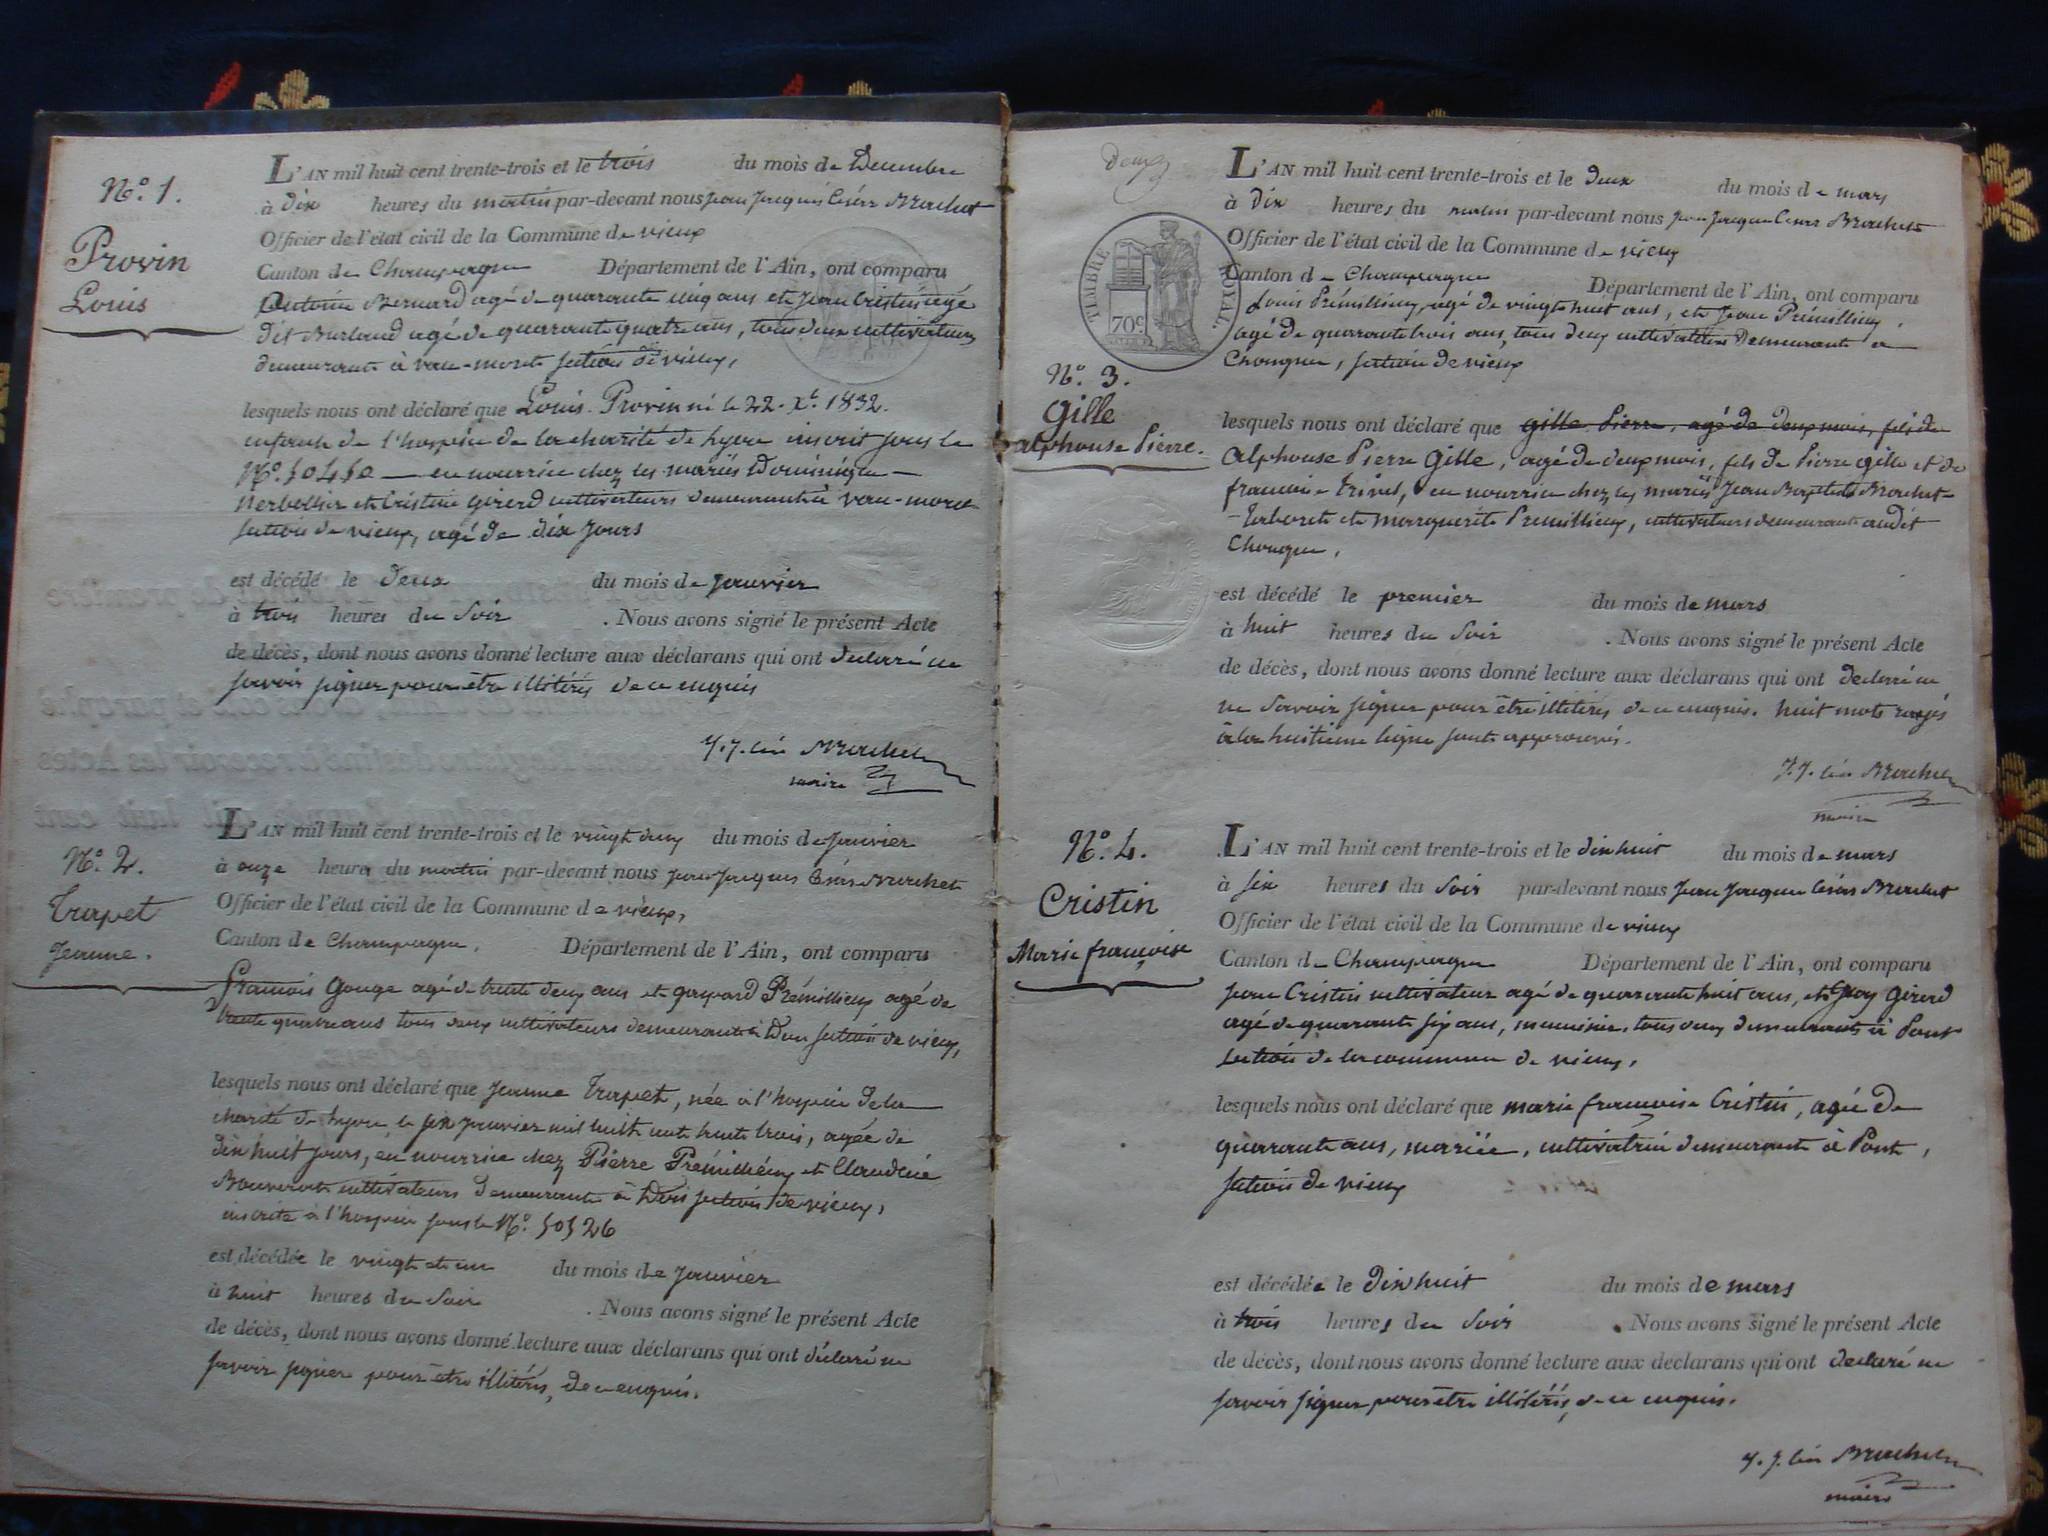 N°. 1.
Provin
Louis
L'AN mil huit cent trente-trois et le trois du mois de Decembre
à dix heures du matin par-devant nous jean jacques Cesar Brachet
Officier de l'état civil de la Commune de vieux
Canton de Champagne Département de l'Ain, ont comparu
Antoine Bernard agé de quarante cinq ans et jean Cristin agé
dit Burland agé de quarante quatre ans, tous deux cultivateurs
demeurants à vau-morte section de vieux,
lesquels nous ont déclaré que Louis Provin né le 22. Xb. 1832.
enfant de l'hospice de la charité de lyon inscrit sous le
N°. 50450 en nourrice chez les mariés Dominique
et Cristine Girerd cultivateurs demeurants à vau-morte
section de vieux, agé de dix jours
est décédé le deux du mois de janvier
à trois heures du Soir . Nous avons signé le présent Acte
de décès, dont nous avons donné lecture aux déclarans qui ont declaré ne
savoir signer pour être illitérés de ce enquis
J. J. César Brachet
maire
N°. 2.
Trapet
Jeanne.
L'AN mil huit cent trente-trois et le vingt deux du mois de janvier
à onze heures du matin par-devant nous jean jacques César Brachet
Officier de l'état civil de la Commune de vieux,
Canton de Champagne. Département de l'Ain, ont comparu
francois Gouge agé de trente deux ans et gaspard Prémillieux agé de
trente quatre ans tous deux cultivateurs demeurants à section de vieux,
lesquels nous ont déclaré que Jeanne Trapet, née à l'hospice de la
charité de lyon le six janvier mil huit cent trente trois, agée de
dix huit jours, en nourrice chez Pierre Prémillieux et Claudine
cultivateurs demeurants à section de vieux,
inscrite à l'hospice sous le N°. 50526
est décédée le vingt et un du mois de janvier
à huit heures du Soir . Nous avons signé le présent Acte
de décès, dont nous avons donné lecture aux déclarans qui ont déclaré ne
savoir signer pour être illitérés, de ce enquis.
deux
TIMBRE ROYAL.
70c
N°. 3.
Gille
alphonse Pierre.
L'AN mil huit cent trente-trois et le deux du mois de mars
à dix heures du matin par-devant nous jean jacques Cesar Brachet
Officier de l'état civil de la Commune de vieux
Canton de Champagne Département de l'Ain, ont comparu
Louis Prémillieux, agé de vingt huit ans, et Jean Prémillieux,
agé de quarante trois ans, tous deux cultivateurs demeurants a
Chongnes, section de vieux
lesquels nous ont déclaré que gille Pierre, agé de deux mois, fils de
Alphonse Pierre Gille, agé de deux mois, fils de Pierre gille et de
francoise Trivet, en nourrice chez les mariés Jean Baptiste Brachet
Taboret et Marguerite Premillieux, cultivateurs demeurants audit
Chongnes,
est décédé le premier du mois de mars
à huit heures du Soir . Nous avons signé le présent Acte
de décès, dont nous avons donné lecture aux déclarans qui ont declaré ne
ne Savoir signer pour être illitérés de ce enquis. huit mots rayés
à la huitieme ligne sont approuvés.
J. J. César Brachet
maire
N°. 4.
Cristin
Marie françoise
L'AN mil huit cent trente-trois et le dix huit du mois de mars
à six heures du Soir par-devant nous Jean Jacques César Brachet
Officier de l'état civil de la Commune de vieux
Canton de Champagne Département de l'Ain, ont comparu
jean Cristin cultivateur agé de quarante huit ans, et Girerd
agé de quarante six ans, menuisier, tous deux demeurants à Pont
section de la commune de vieux,
lesquels nous ont déclaré que marie francoise Cristin, agée de
quarante ans, mariée, cultivatrice demeurante à Pont,
section de vieux
est décédée le dix huit du mois de mars
à trois heures du Soir . Nous avons signé le présent Acte
de décès, dont nous avons donné lecture aux déclarans qui ont declaré ne
savoir signer pour être illitérés, de ce enquis.
J. J. César Brachet
maire